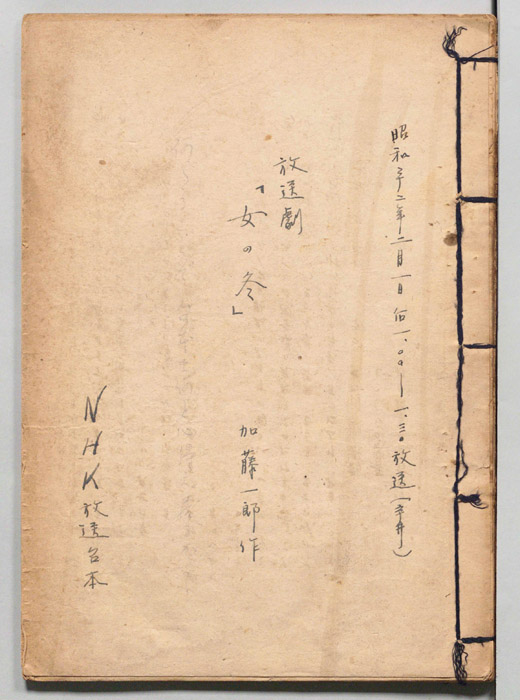 昭和 二年二月一日 自一.〇〇〜一.三〇放送
放送劇
「女の冬」
加藤一郎作
NHK放送台本